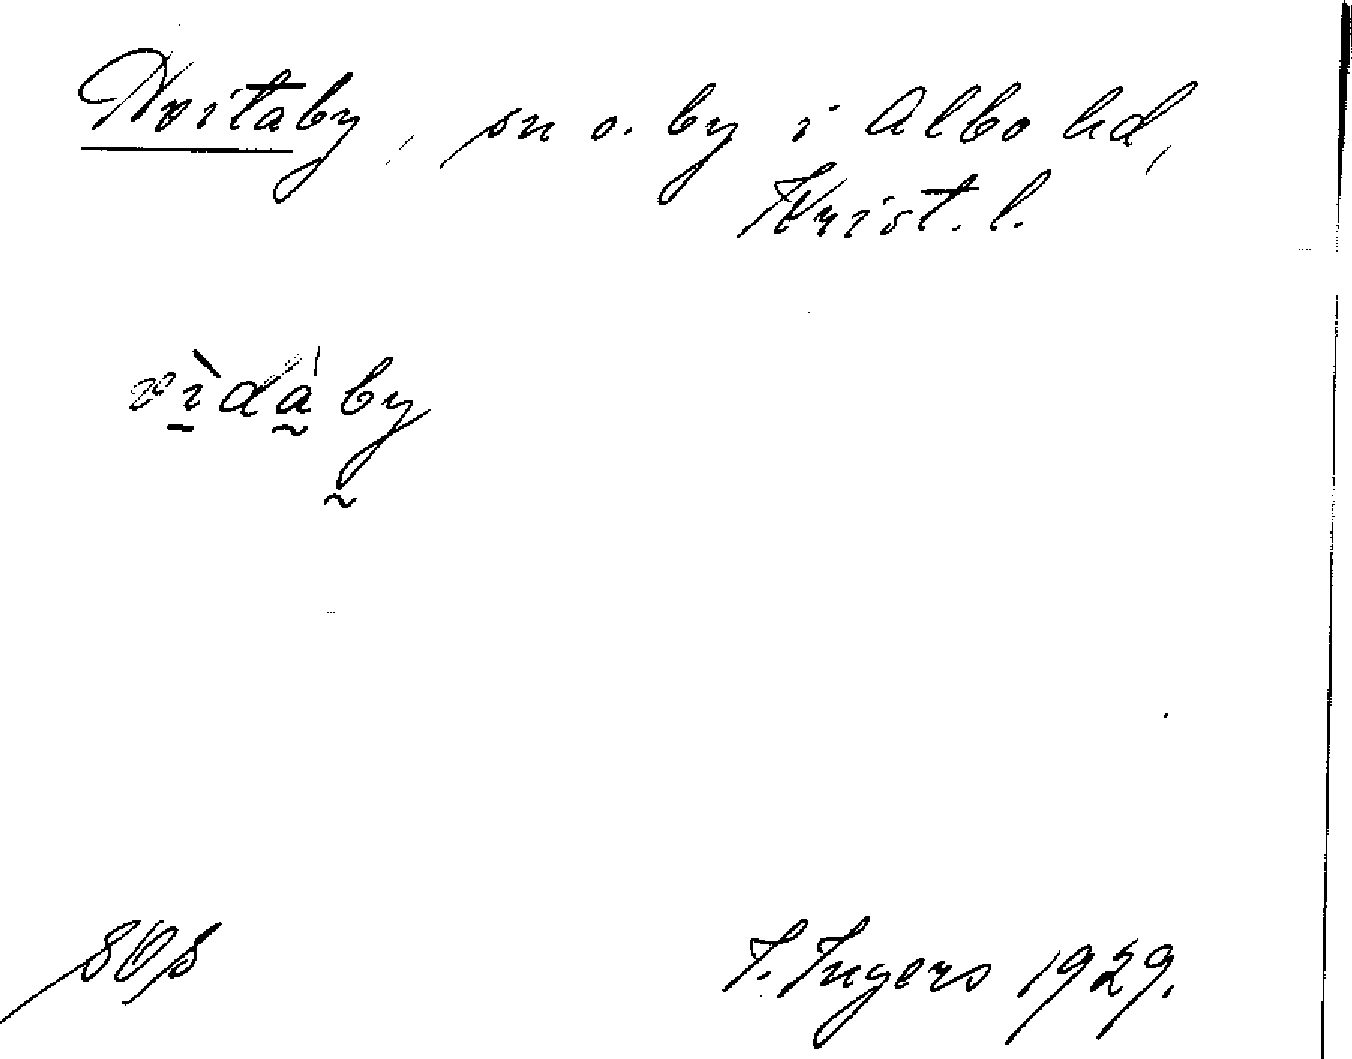 Hvitaby, sn o. by i Albo hd,
Krist. l.
vìdáby
I. Ingers 1929.